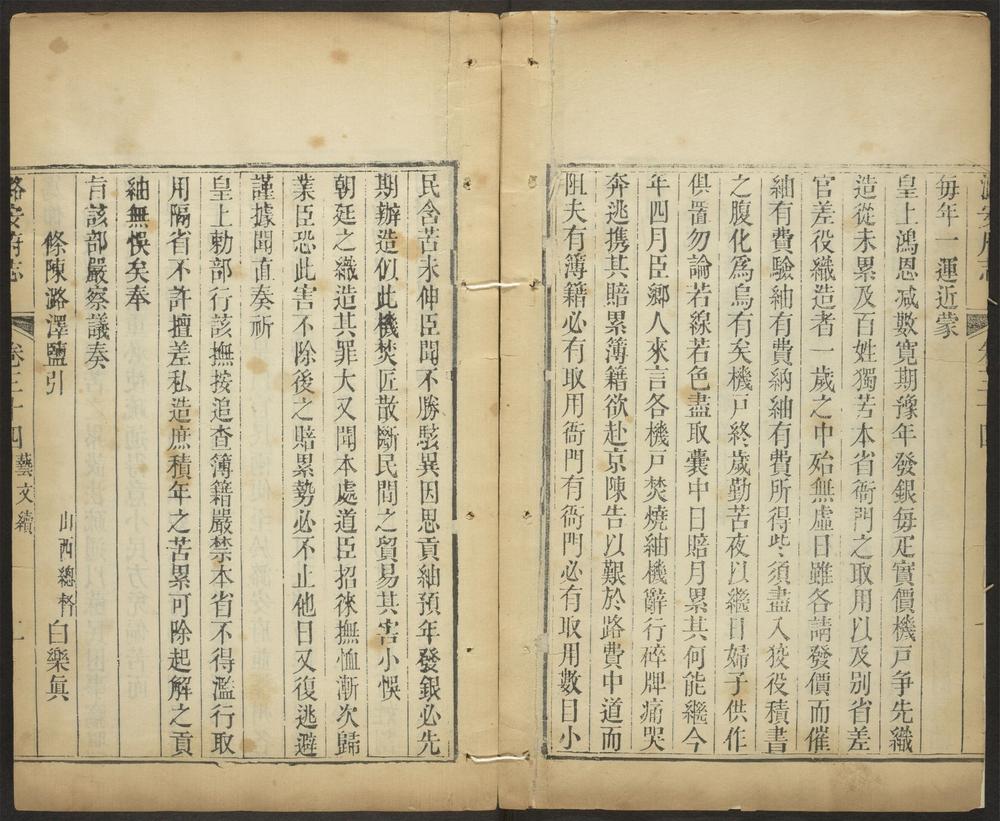 每年一運近蒙
皇上鴻恩减數寬期豫年發銀每疋實價機戸争先織
造從未累及百姓獨苦本省衙門之取用以及别省差
官差役織造者一歲之中殆無虛日雖各請發價而催
紬有費驗紬有費納紬有費所得些須盡入狡役積書
之腹化爲烏有矣機戸終歲勤苦夜以繼日婦子供作
俱置勿論若線若色盡取囊中日賠月累其何能繼今
年四月臣鄉人來言各機戸焚燒紬機辭行碎牌痛哭
奔逃携其賠累簿籍欲赴京陳告以艱於路費中道而
阻夫有簿籍必有取用衙門有衙門必有取用數目小
民含苦未伸臣聞不勝駭異因思貢紬預年發銀必先
期辦造似此機焚匠散斷民間之貿易其害小悞
朝廷之織造其罪大又聞本處道臣招徠撫恤漸次歸
業臣恐此害不除後之賠累勢必不止他日又復逃避
謹據聞直奏祈
皇上勅部行該撫按追查簿籍嚴禁本省不得濫行取
用隔省不許擅差私造庶積年之苦累可除起解之貢
紬無悞矣奉
旨該部嚴察議奏
條陳潞澤鹽引
山西總督白樂眞
潞安府志 卷三十四 藝文續 二